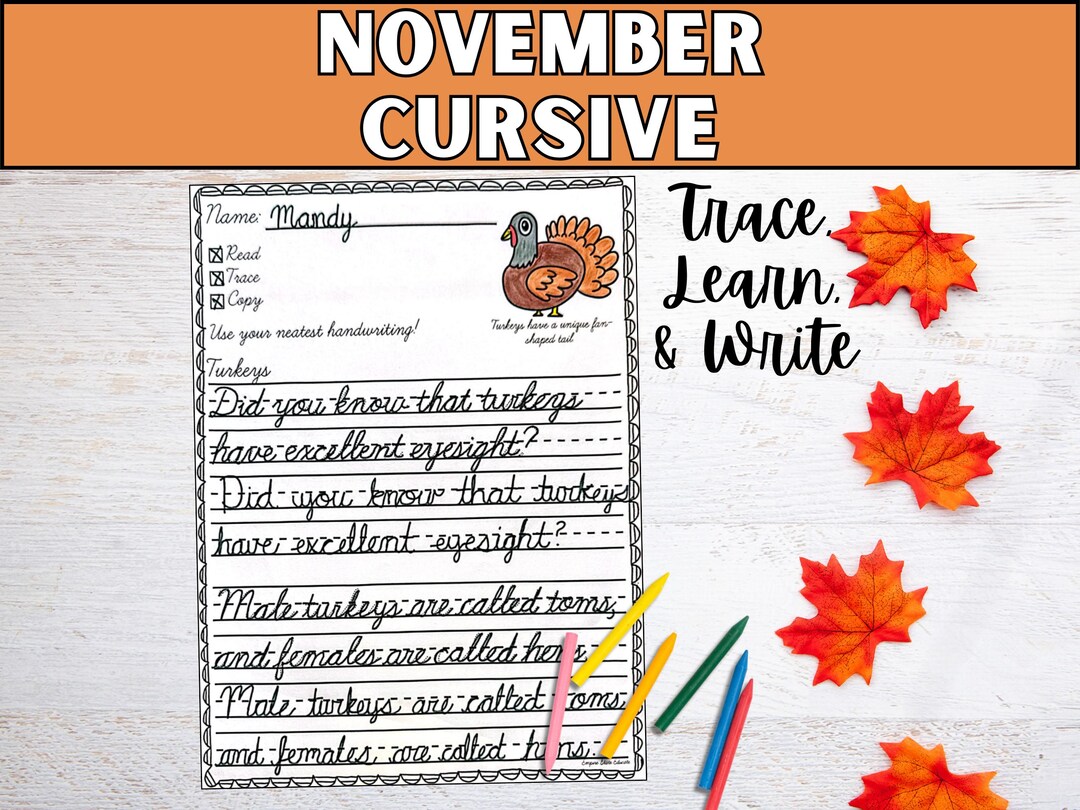 NOVEMBER
CURSIVE
Name: Mandy
Read
Trace
Copy
Use your neatest handwriting!
Turkeys have a unique fan-
shaped tail
Turkeys
Did you know that turkeys
have excellent eyesight?
Did you know that turkeys
have excellent eyesight?
Male turkeys are called toms,
and females are called hens.
Male turkeys are called toms,
and females are called hens.
Trace,
Learn,
& Write